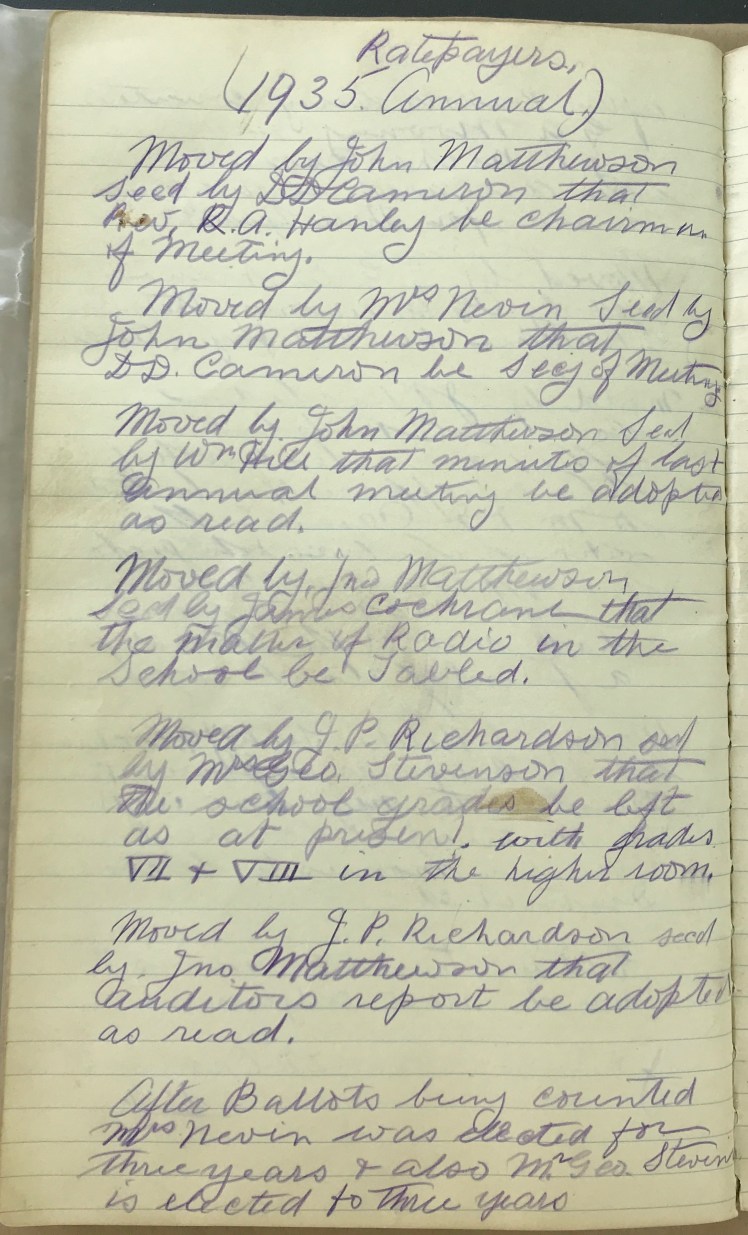 Ratepayers,
(1935. Annual.)
Moved by John Matthewson
Secd by D D Cameron that
Rev. R.A. Hanley be chairman
of Meeting.
Moved by Mrs Nevin Secd by
John Matthewson that
D.D. Cameron be Secy of Meeting
Moved by John Matthewson Secd
by Wm Hill that minutes of last
annual meeting be adopted
as read.
Moved by, Jno Matthewson
Secd by James Cochrane that
the matter of Radio in the
School be Tabled.
Moved by J. P. Richardson secd
by Mrs Geo. Stevenson that
the school grades be left
as at present. with grades
VII + VIII in the higher room.
Moved by J. P. Richardson secd
by. Jno Matthewson that
auditors report be adopted
as read.
After Ballots being counted
Mrs Nevin was elected for
three years & also Mr Geo. Stevens
is elected to three years